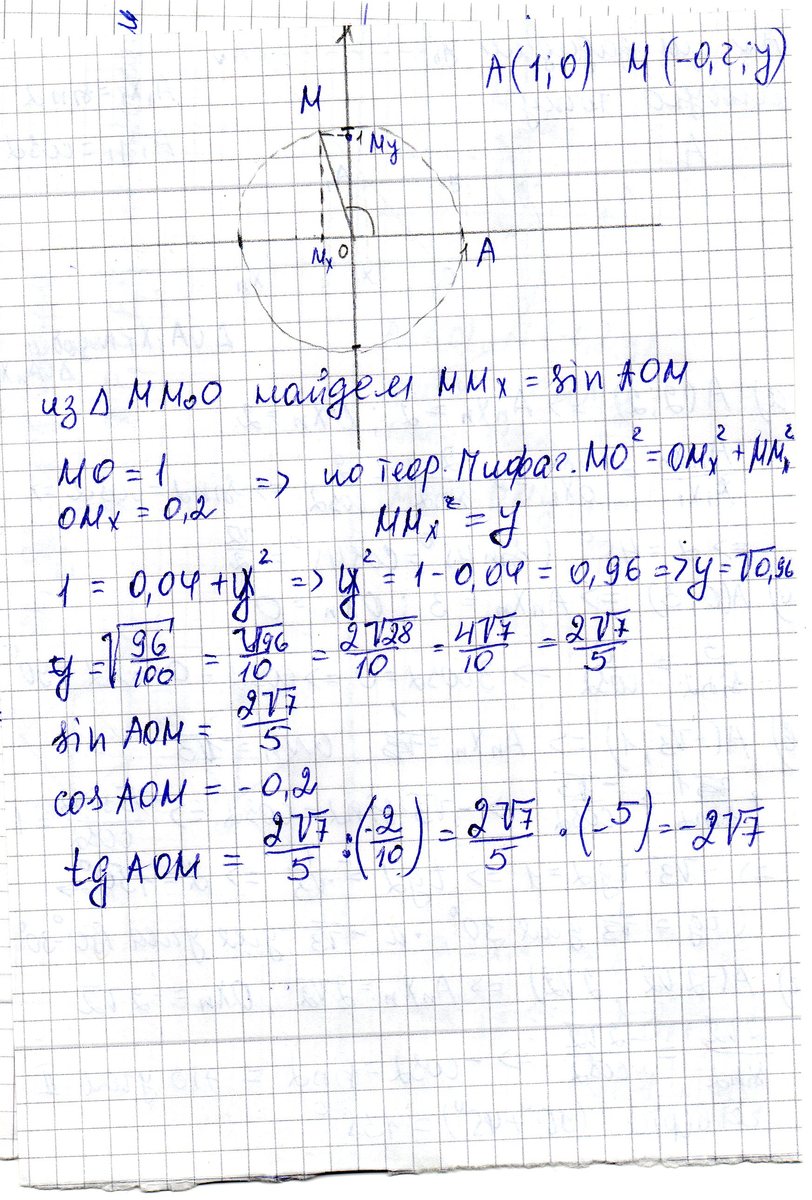 A(1;0) M(-0,2;y)
M
1 My
Mx 0 1 A
из △ MMₒO найдем MMx = sin AOM
MO = 1
OMx = 0,2
=> по теор. Пифаг. MO² = OMx² + MMx²
MMx² = y
1 = 0,04 + y² => y² = 1 - 0,04 = 0,96 => y = √0,96
y = √(96/100) = √96/10 = 2√28/10 = 4√7/10 = 2√7/5
sin AOM = 2√7/5
cos AOM = -0,2
tg AOM = 2√7/5 : (-2/10) = 2√7/5 · (-5) = -2√7